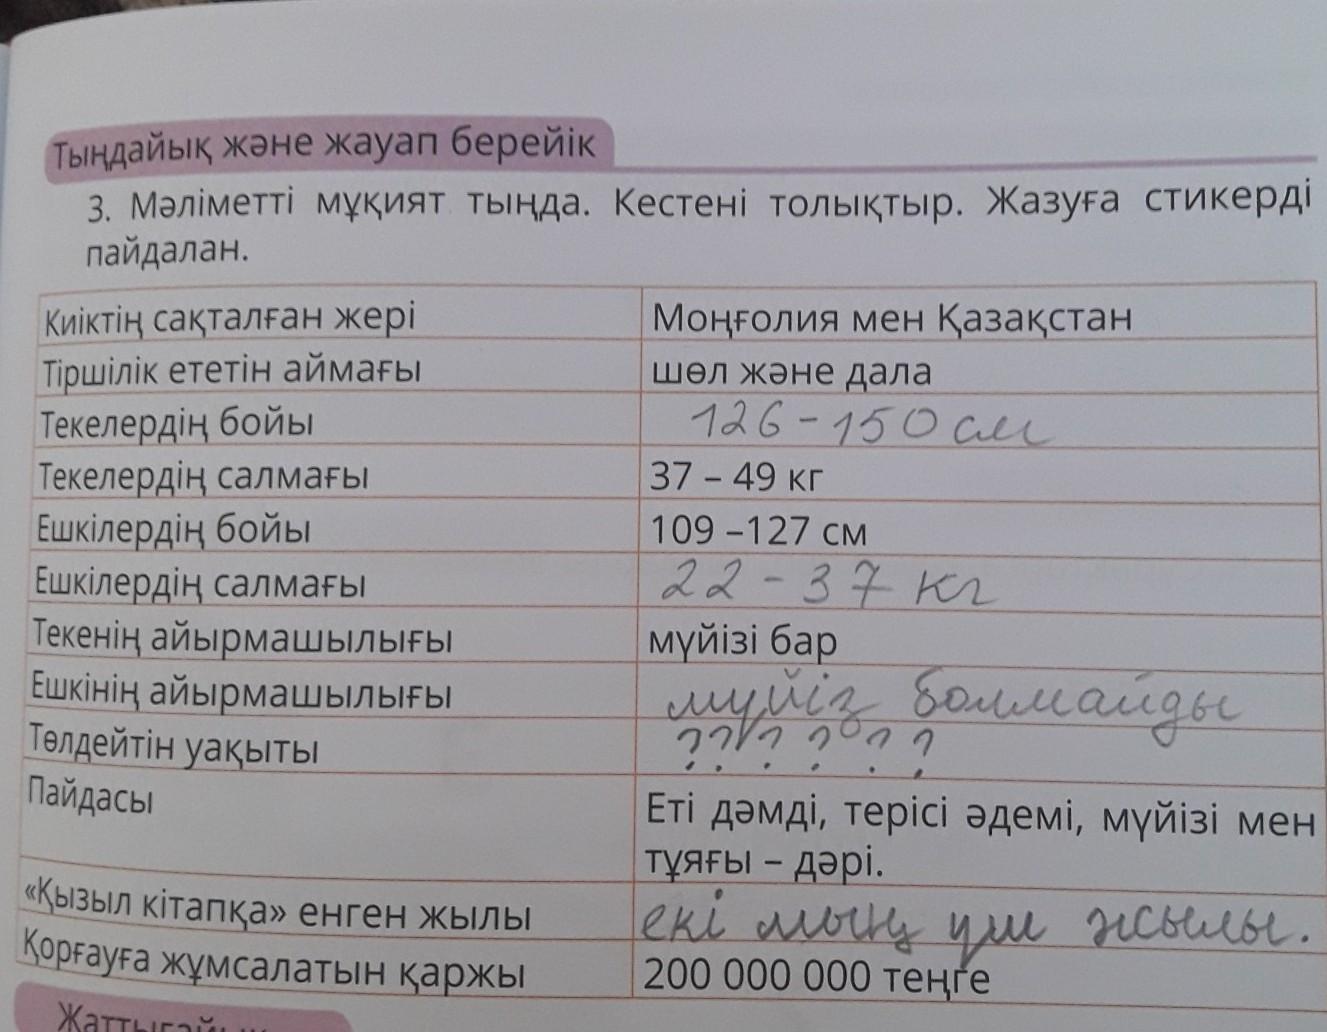 Тыңдайық және жауап берейік
3. Мәліметті мұқият тыңда. Кестені толықтыр. Жазуға стикерді
пайдалан.
Киіктің сақталған жері Моңғолия мен Қазақстан
Тіршілік ететін аймағы шөл және дала
Текелердің бойы 126-150 см
Текелердің салмағы 37 – 49 кг
Ешкілердің бойы 109 –127 см
Ешкілердің салмағы 22-37 кг
Текенің айырмашылығы мүйізі бар
Ешкінің айырмашылығы мүйіз болмайды
Төлдейтін уақыты ??????
Пайдасы Еті дәмді, терісі әдемі, мүйізі мен
тұяғы – дәрі.
«Қызыл кітапқа» енген жылы екі мың үш жылы.
Қорғауға жұмсалатын қаржы 200 000 000 теңге